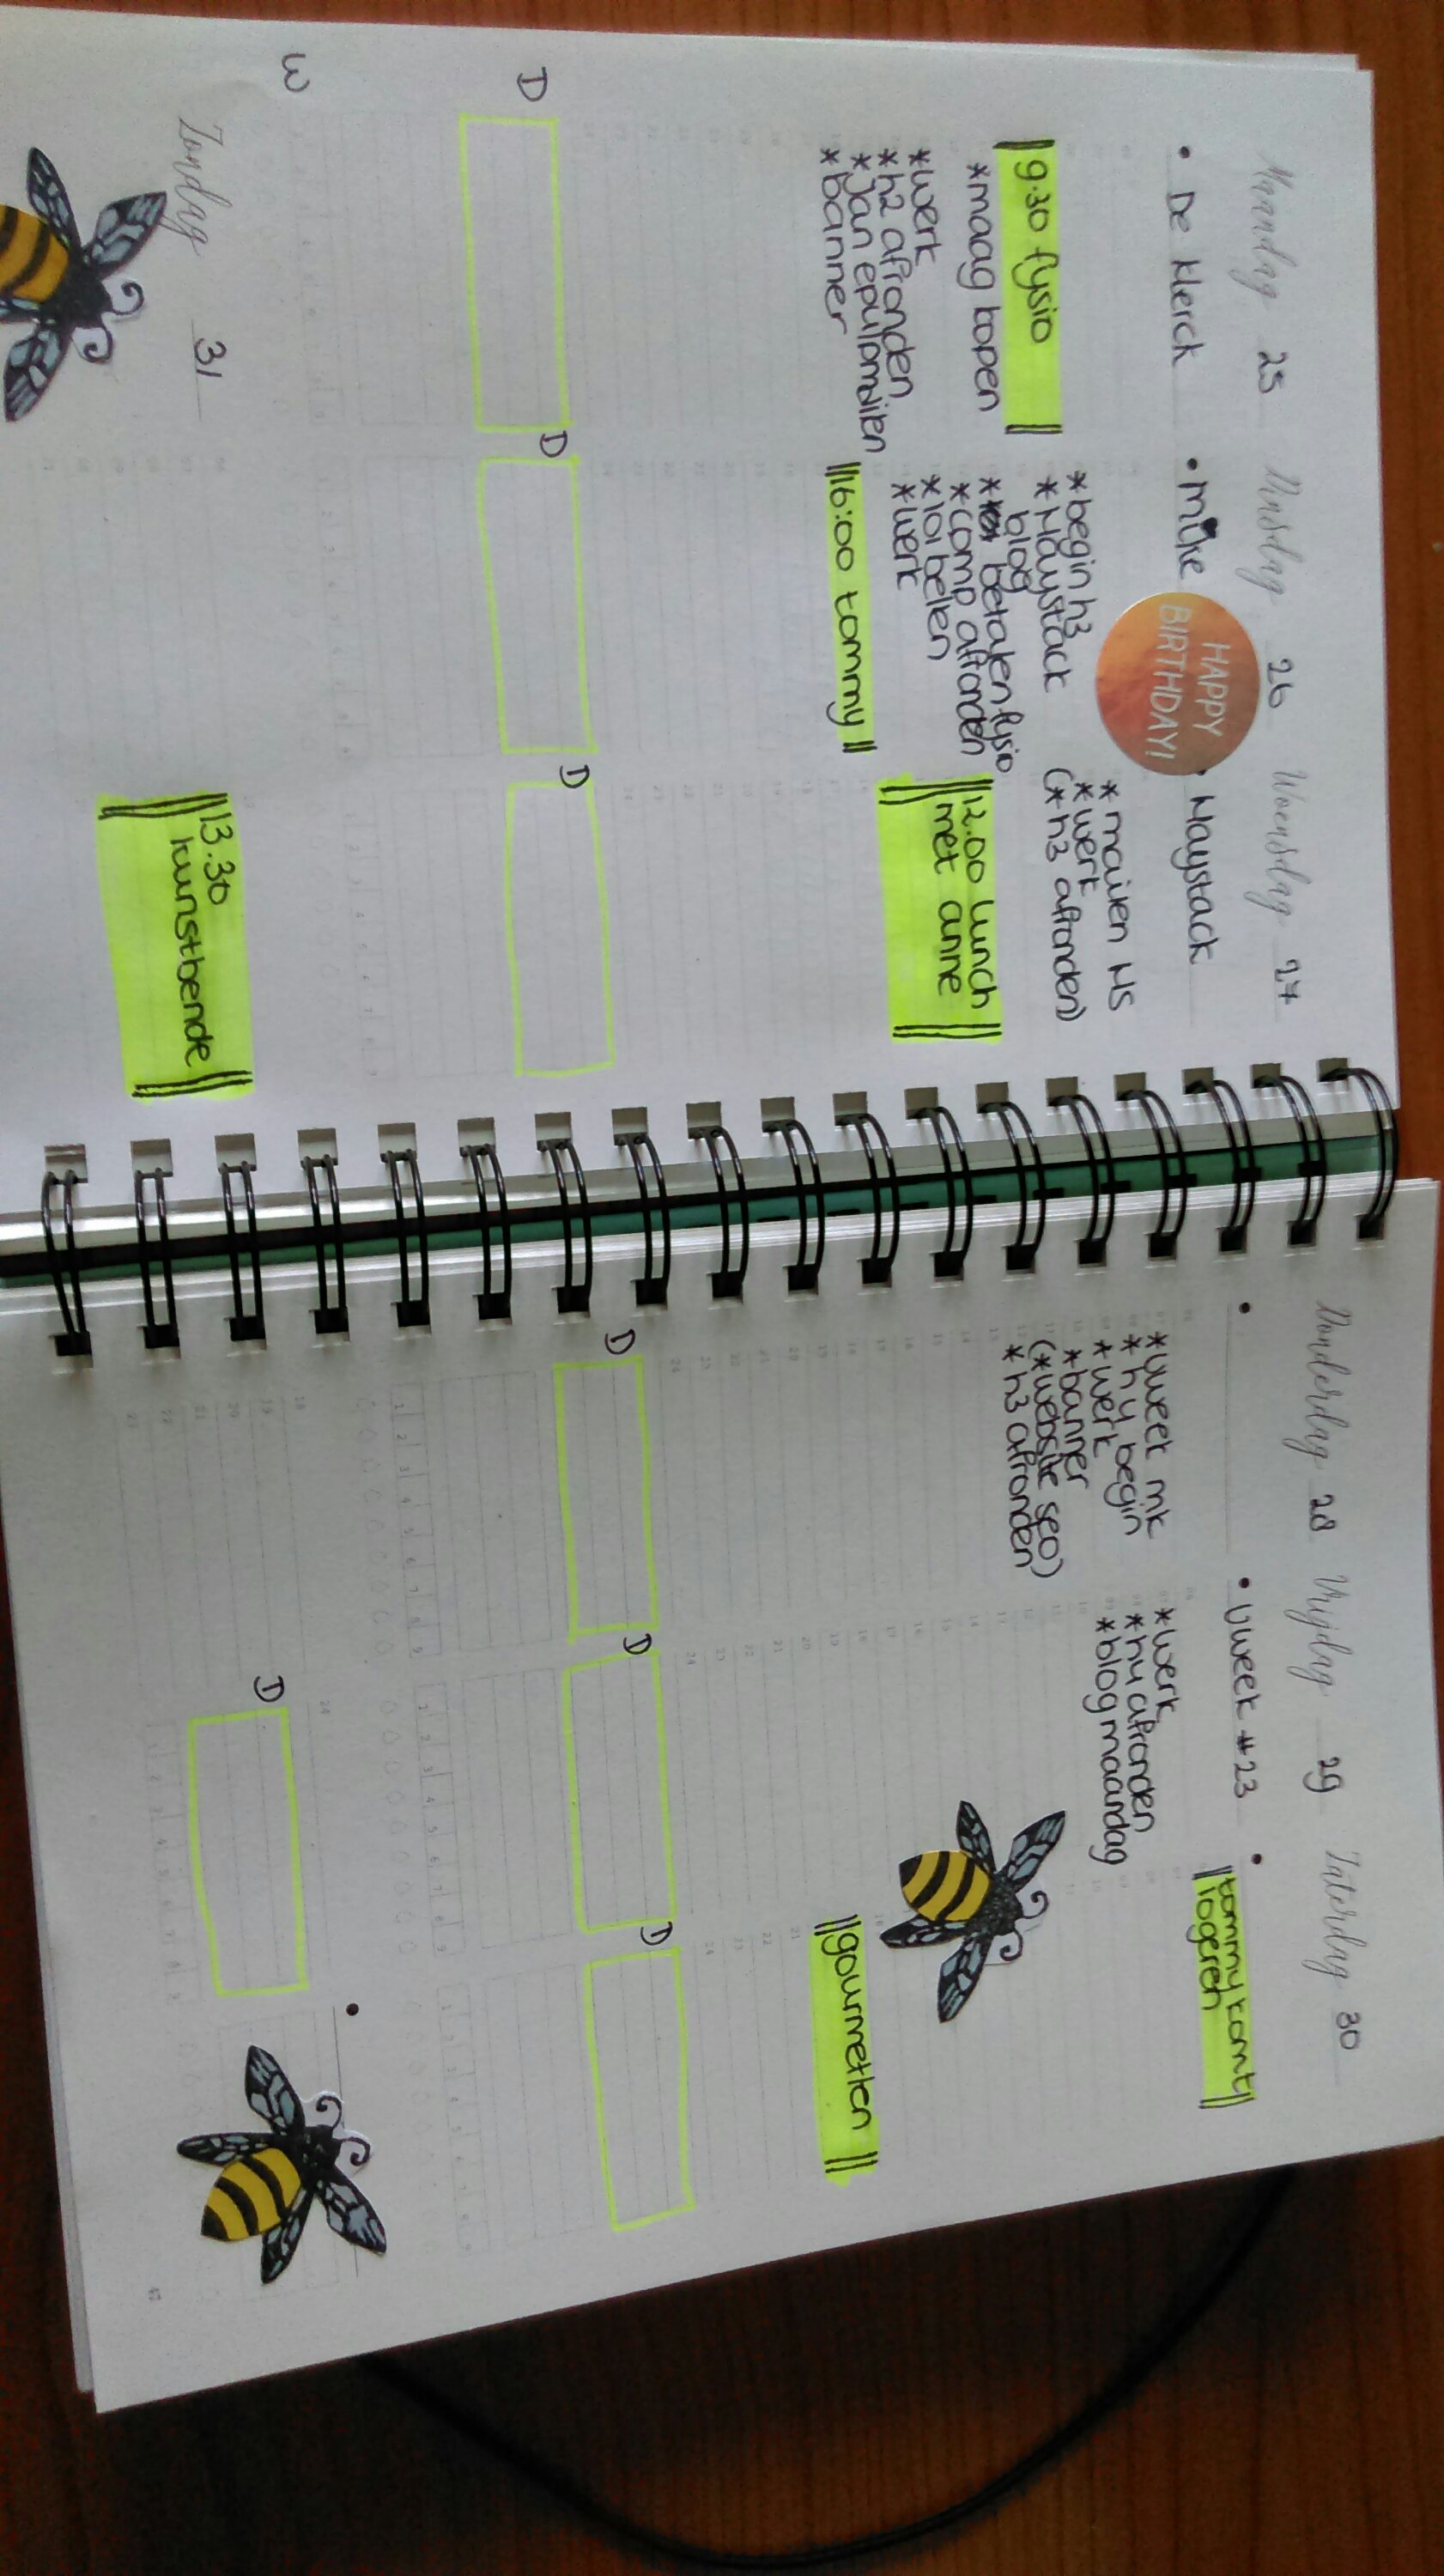 Maandag 25
• De Klerck
9.30 fysio
*maag kopen
*werk
*h2 afronden
*Jan epulpmailen
*banner
D
Dinsdag 26
• Mike
HAPPY
BIRTHDAY!
*begin h3
*Haystack
blog
* betalen fysio
*comp afronden
*101 bellen
*werk
16:00 tommy
D
Woensdag 27
Haystack
*mailen HS
*werk
(*h3 afronden)
12.00 lunch
met anne
D
W
Zondag 31
13.30
kunstbende
Donderdag 28
•
*vweek mk
*h4 begin
*werk
*banner
(*website seo)
*h3 afronden
D
Vrijdag 29
• Vweek #23
*werk
*h4 afronden
*blog maandag
D
Zaterdag 30
•
tommy komt
logeren
gourmetten
D
D
•